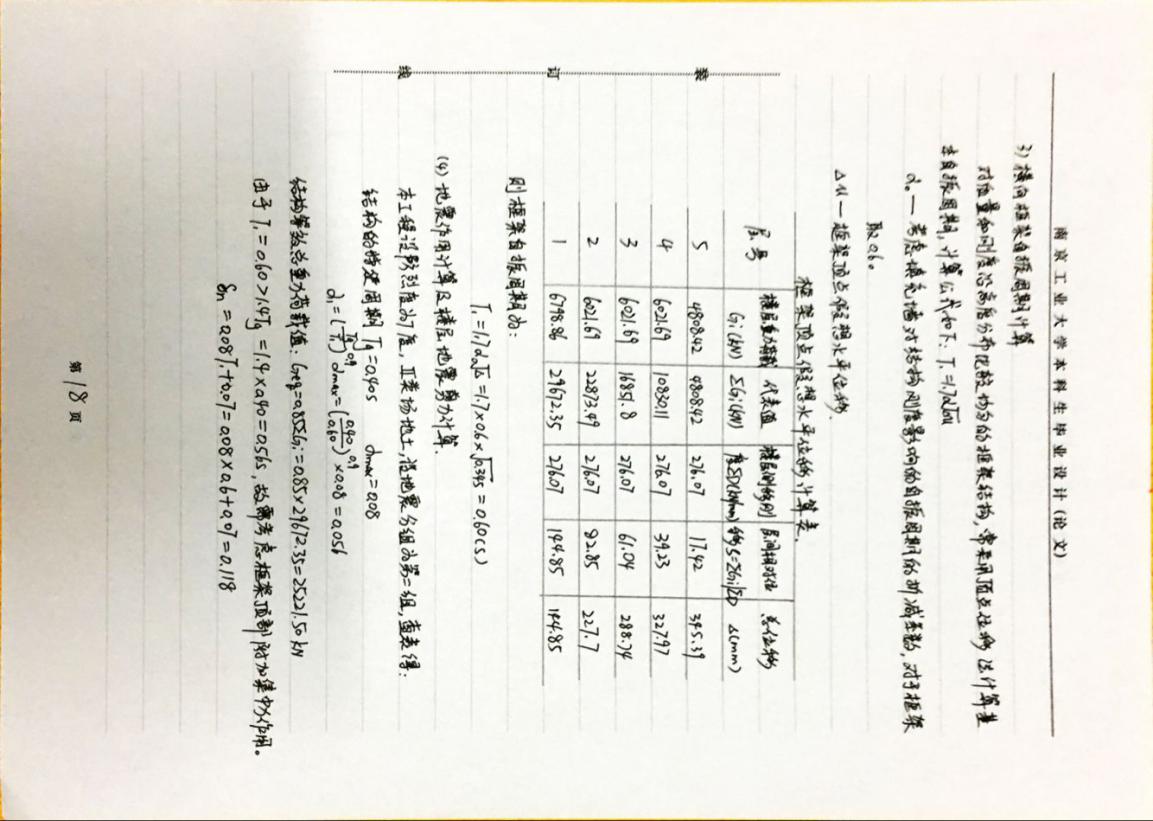 南京工业大学本科生毕业设计（论文）
3）横向框架自振周期计算
对质量和刚度沿高度分布比较均匀的框架结构，常采用顶点位移法计算基
本自振周期，计算公式如下：T₁=1.7α₀√Δu
α₀—考虑填充墙对结构刚度影响的自振周期的折减系数，对于框架
取0.6。
Δu—框架顶点假想水平位移。
框架顶点假想水平位移计算表
层号 楼层重力荷载 代表值 楼层侧移刚 层间相对位 总位移
Gi(kN) ΣGi(kN) 度ΣD(kN/mm) 移δ=ΣGi/ΣD Δ(mm)
5 4808.42 4808.42 276.07 17.42 345.39
4 6021.69 10830.11 276.07 39.23 327.97
3 6021.69 16851.8 276.07 61.04 288.74
2 6021.69 22873.49 276.07 82.85 227.7
1 6798.86 29672.35 276.07 144.85 144.85
则框架自振周期为：
T₁=1.7α₀√Δ=1.7×0.6×√0.345=0.60(s)
(4) 地震作用计算及楼层地震剪力计算.
本工程设防烈度为7度，Ⅱ类场地土，设地震分组为第二组，查表得：
结构的特征周期 Tg=0.40s αmax=0.08
α₁=(Tg/T₁)^0.9 αmax=(0.40/0.60)^0.9×0.08=0.056
结构等效总重力荷载值：Geq=0.85ΣGi=0.85×29672.35=25221.50kN
由于T₁=0.60>1.4Tg=1.4×0.40=0.56s，故需考虑框架顶部附加集中力作用。
δn=0.08T₁+0.07=0.08×0.6+0.07=0.118
第18页
装
订
线